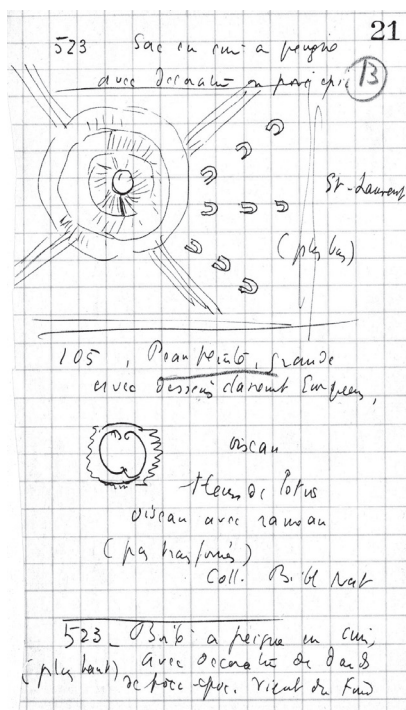 21
523 Sac en cuir a peigne
avec decoration en porc epic
13
St-Laurent
(plus bas)
105, Peau peinte, grande
avec dessins clairement Européens,
oiseau
fleurs de lotus
oiseau avec rameau
(pas transformés)
Coll. Bibl Nat
523_ a peigne en cuir,
(plus haut) avec decoration de dards
de porc-epic. vient du Fond